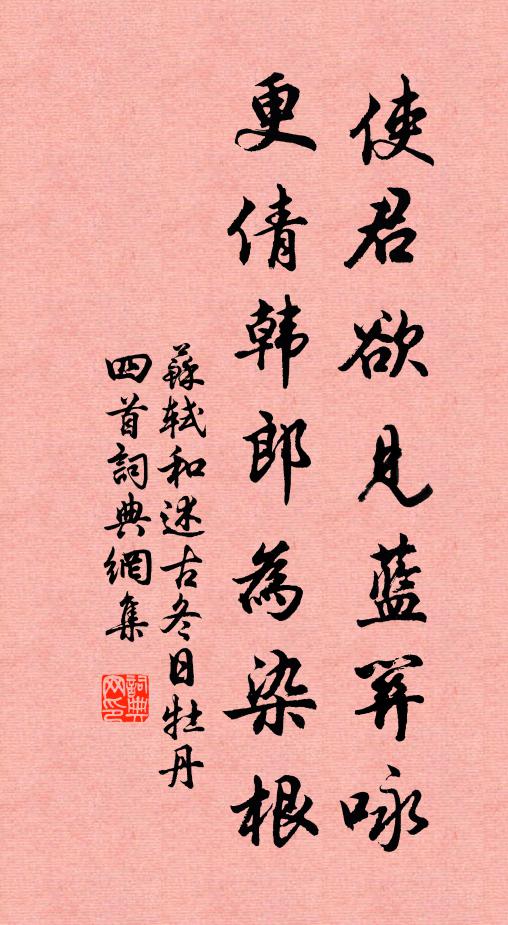 使君欲見藍關咏
更倩韩郎為染根
蘇軾和述古冬日牡丹
四首詞典網集
詞典
网印